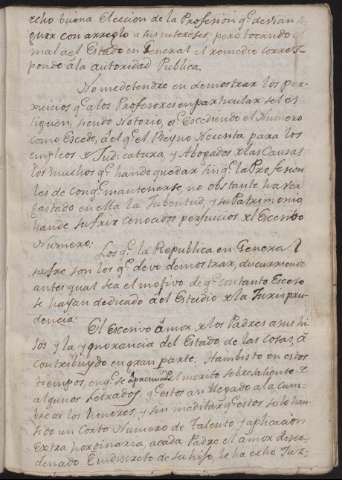 echo buena Eleccion de la Profesion q.e devian
guar con arreglo a sus intereses, pero tocando
mal àel Estado en General el remedio corres
ponde ála autoridad Publica.
No me detendre en demostrar los per
juicios q.e à los Profesores en particular se les
siguen, siendo Notorio, q.e Escediendo el Numero
como Escede, à el q.e el Reyno Necesita para los
empleos de Judicatura, y Abogados de las Causas
los muchos q.e han de quedar sin q.e la Profesion
les dé con q.e mantenerse, no obstante haver
gastado en ella la Jubentud, y su Patrimonio
han de sufrir conocidos perjuicios del Escesivo
Numero.
Los q.e la Republica en General
sufre son los q.e devo demostrar, discurriendo
antes qual sea el motivo de q.e con tanto Exceso
se hayan dedicado àel Estudio de la Jurispru
dencia.
El Excesivo àmor de los Padres à sus hi
jos y la ygnorancia del Estado de las Cosas, à
contribuydo en gran parte. Han visto en estos
tiempos, en q.e se à parecido el merito sobresaliente de
algunos Letrados, q.e estos an llegado à la Cum
bre de los Honores, y sin meditar q.e estos solo han
sido un Corto Numero de Talento, y aplicacion
extra hordinaria, acada Padre el àmor desor
denado è yndiscreto de su hijo, le ha echo Juz-